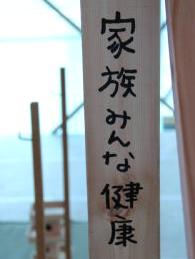 家族みんな健康